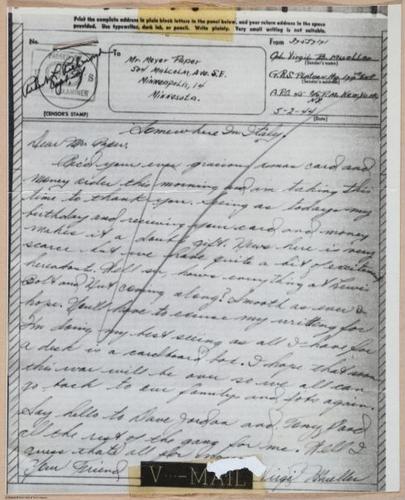 Print the complete address in plain block letters in the panel below, and your return address in the space
provided. Use typewriter, dark ink, or pencil. Write plainly. Very small writing is not suitable.
No.
(CENSOR'S STAMP)
To
Mr. Meyer Paper
504 Malcolm Ave. S.E.
Minneapolis, 14
Minnesota.
From
Virgil B. Mueller
(Sender's name)
(Sender's address)
5-2-44
(Date)
Somewhere In Italy.
Dear Mr. Paper,
Rec'd your ever gracious card and
money order this morning and am taking this
time to thank you. Seeing as todays my
birthday and receiving your card and money
makes it a double gift. News here is very
scarce but we have quite a bit of excitement
hereabouts. Well sir hows everything at
Bolt and Nut coming along? Smooth as ever I
hope. You'll have to excuse my writing for
I'm doing my best seeing as all I have for
a desk is a cardboard box. I hope that soon
this war will be over so we all can
go back to our family and jobs again.
Say hello to Dave Jordon and
all the rest of the gang for me. Well I
guess thats all for now
Your Friend
Virgil Mueller
V···—MAIL